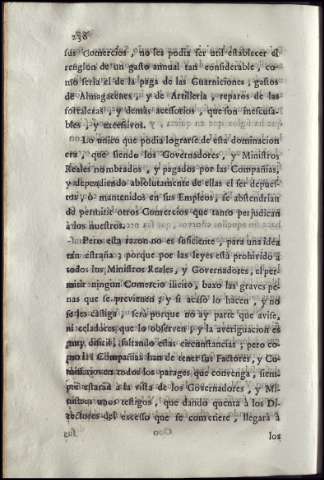 238
sus Comercios, no les podia ser util establecer el
renglon de un gasto annual tan considerable, co-
mo seria el de la paga de las Guarniciones, gastos
de Almagacenes, y de Artilleria, reparos de las
fortalezas, y demàs accessorios, que son inescusa-
bles, y excessivos.
Lo unico que podia lograrse de esta dominacion
era, que siendo los Governadores, y Ministros
Reales nombrados, y pagados por las Compañias,
y dependiendo absolutamente de ellas el ser depues-
tos, ò mantenidos en sus Empleos, se abstendrian
de permitir otros Comercios que tanto perjudican
à los nuestros.
Pero esta razon no es suficiente, para una idèa
tan estraña; porque por las leyes està prohibido à
todos los Ministros Reales, y Governadores, el per-
mitir ningun Comercio ilicito, baxo las graves pe-
nas que se previenen; y si acaso lo hacen, y no
se les castiga, serà porque no ay parte que avise,
ni celadores que lo observen; y la averiguacion es
muy dificil, faltando estas circunstancias; pero co-
mo las Compañias han de tener sus Factores, y Co-
missarios en todos los parages que convenga, siem-
pre estaràn à la vista de los Governadores, y Mi-
nistros unos testigos, que dando quenta à los Di-
rectores del excesso que se cometiere, llegarà à
los